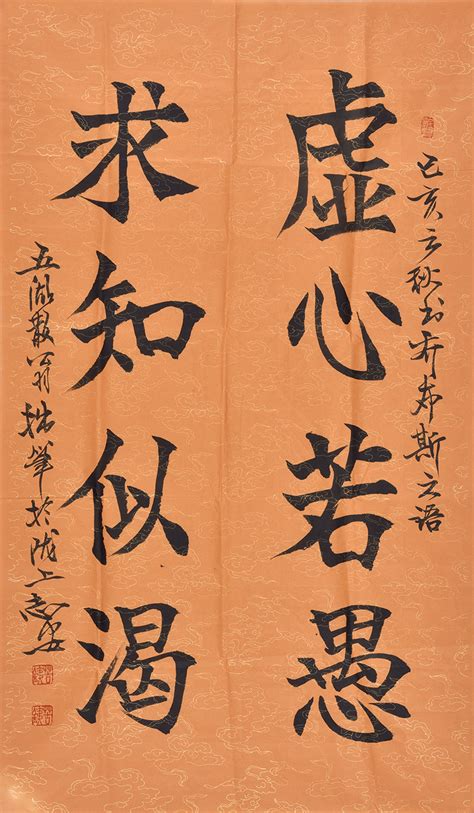 己亥之秋书乔布斯之语
虚心若愚
求知似渴
五湖散翁拙笔于陇上志安